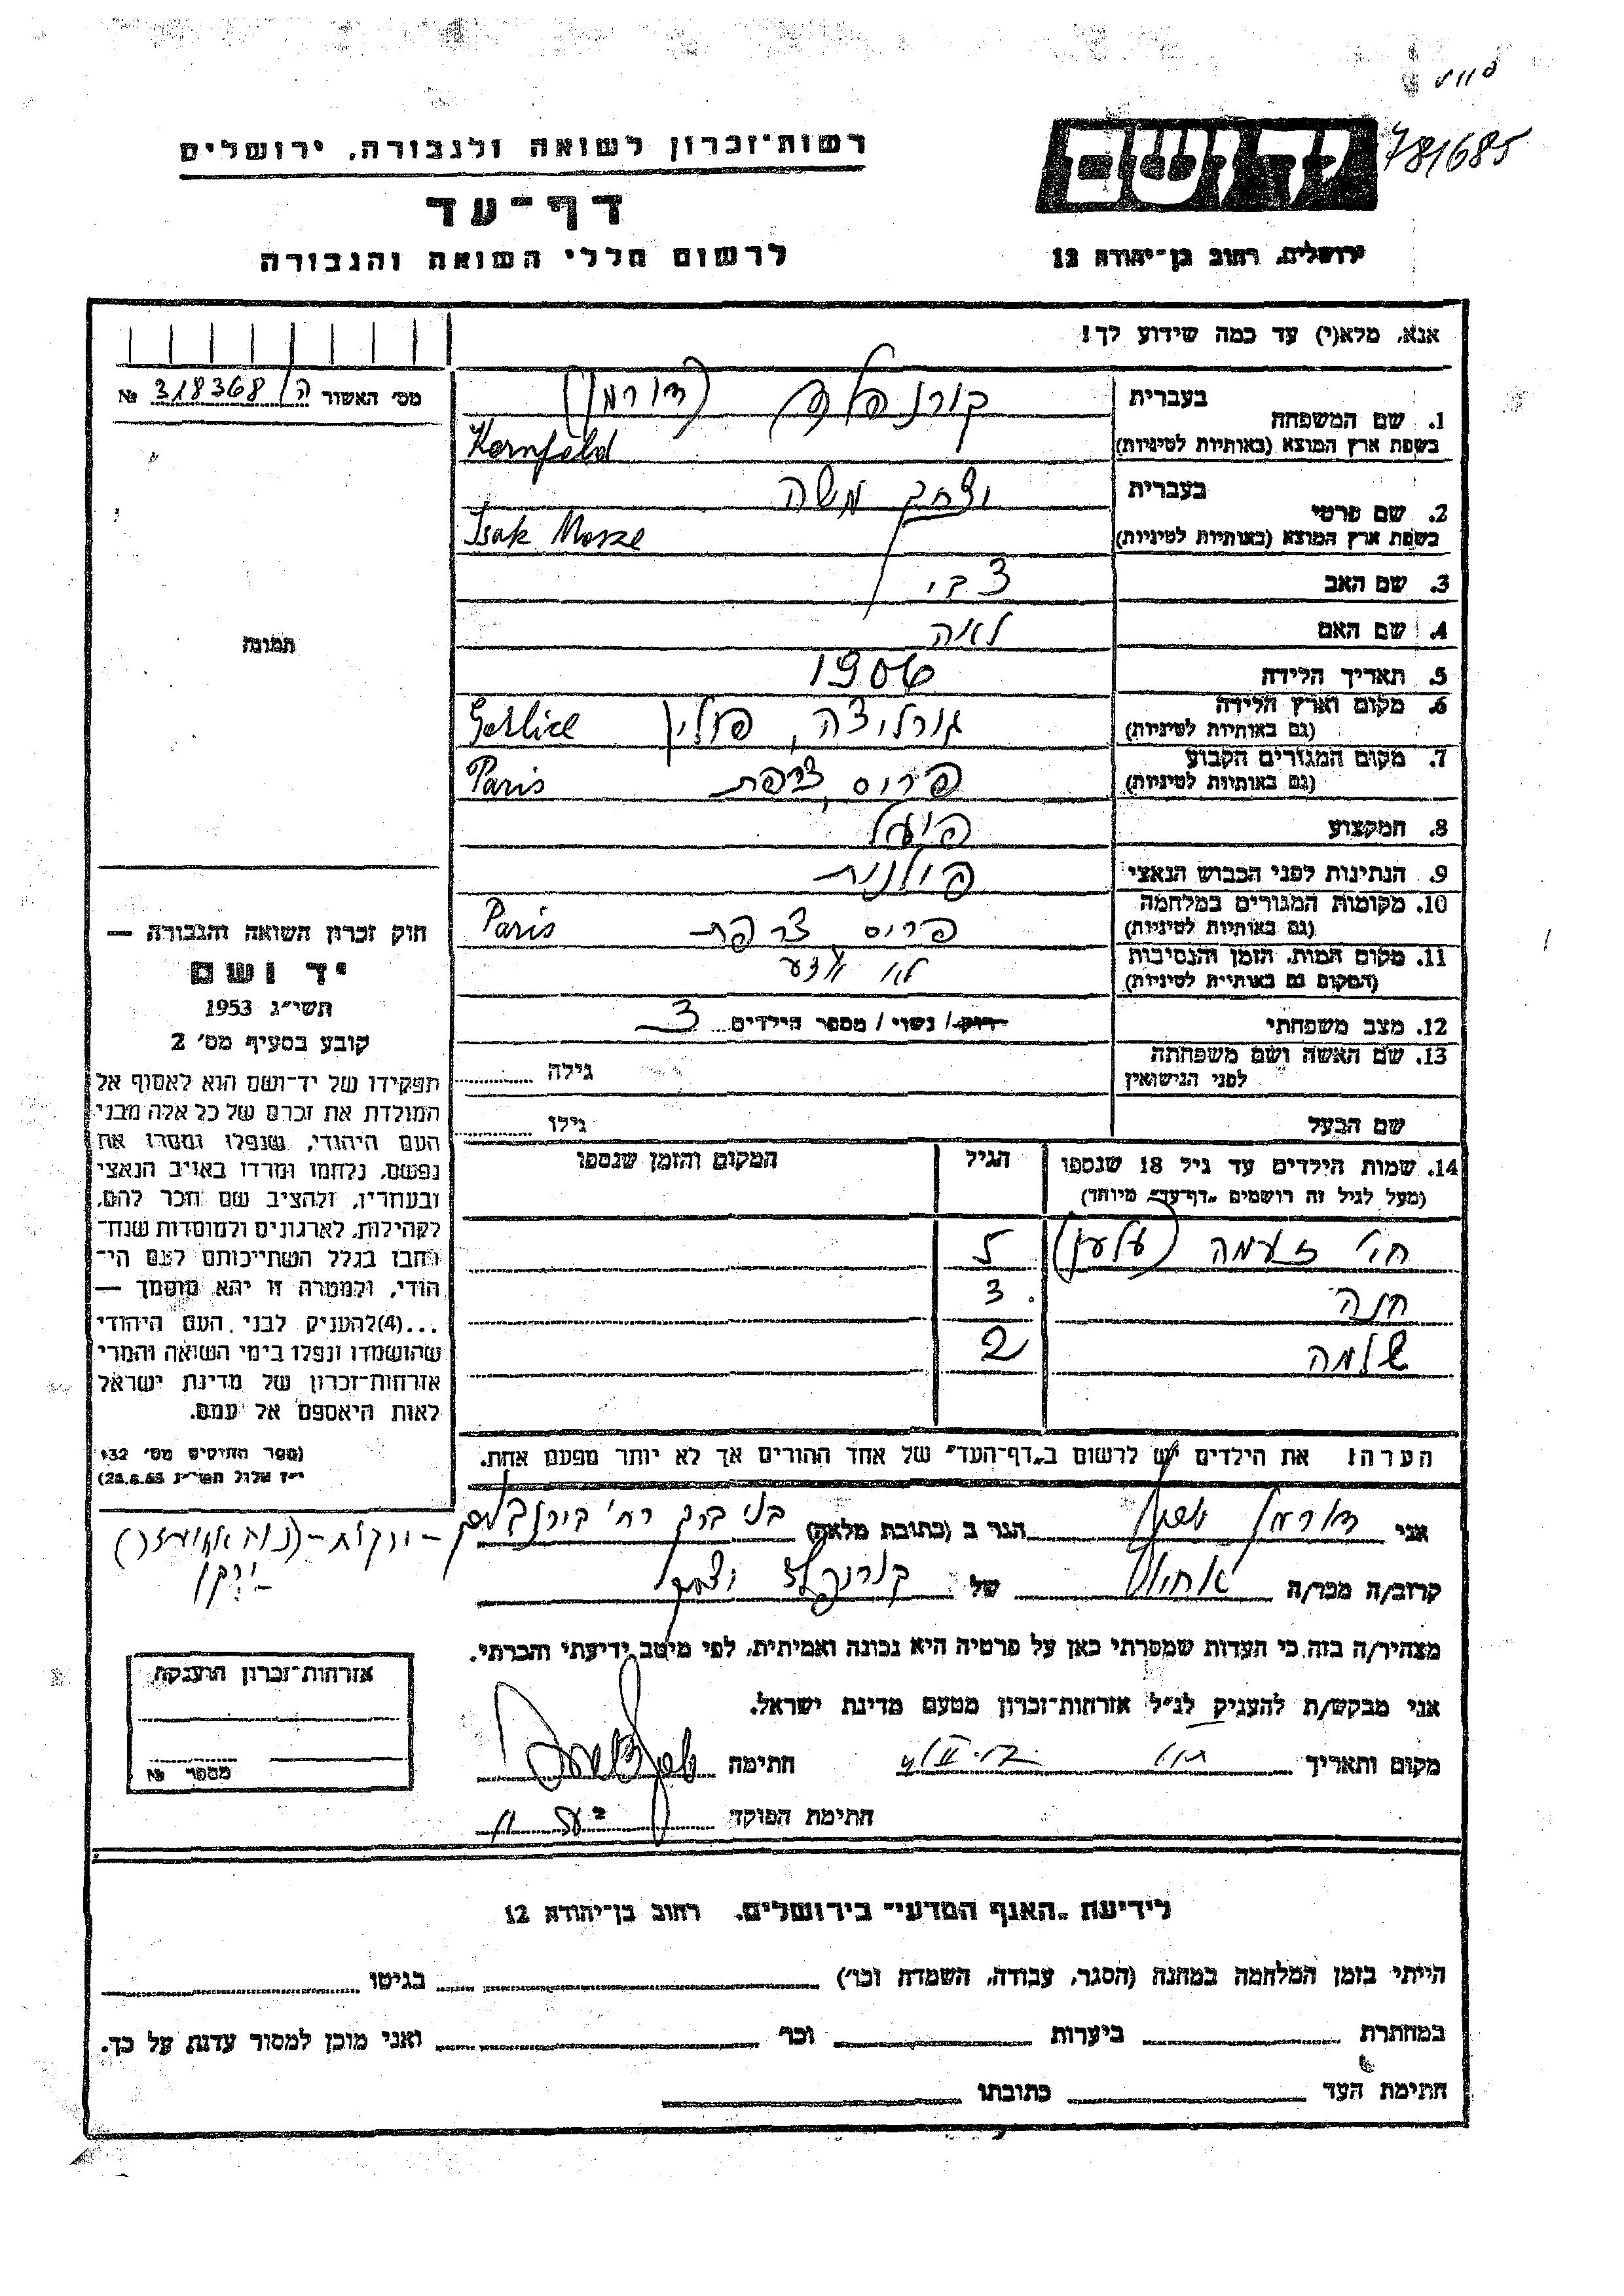 781685
רשות־זכרון לשואה ולגבורה, ירושלים
יד ושם
דף־עד
לרשום חללי השואה והגבורה
ירושלים, רחוב בן־יהודה 12
אנא, מלא(י) עד כמה שידוע לך!
מס' האשור ה/ 318368 №
1. שם המשפחה בעברית קורנפלד (דורמן)
בשפת ארץ המוצא (באותיות לטיניות) Kornfeld
2. שם פרטי בעברית יצחק משה
בשפת ארץ המוצא (באותיות לטיניות) Isak Mosze
3. שם האב צבי
4. שם האם לאה
תמונה
5. תאריך הלידה 1906
6. מקום וארץ הלידה (גם באותיות לטיניות) גורליצה, פולין Gorlice
7. מקום המגורים הקבוע (גם באותיות לטיניות) פריס, צרפת Paris
8. המקצוע פועל
9. הנתינות לפני הכבוש הנאצי פולנית
10. מקומות המגורים במלחמה (גם באותיות לטיניות) פריס צרפת Paris
11. מקום המות, הזמן והנסיבות (המקום גם באותיות לטיניות) לא ידוע
12. מצב משפחתי רווק / נשוי / מספר הילדים 3
13. שם האשה ושם משפחתה לפני הנישואין גילה
שם הבעל גילו
14. שמות הילדים עד גיל 18 שנספו (מעל לגיל זה רושמים "דף־עד" מיוחד) הגיל המקום והזמן שנספו
חי' נעמה 5
חנה 3
שלמה 2
חוק זכרון השואה והגבורה —
יד ושם
תשי"ג 1953
קובע בסעיף מס' 2
תפקידו של יד־ושם הוא לאסוף אל
המולדת את זכרם של כל אלה מבני
העם היהודי, שנפלו ומסרו את
נפשם, נלחמו ומרדו באויב הנאצי
ובעוזריו, ולהציב שם וזכר להם,
לקהילות, לארגונים ולמוסדות שנח־
רבו בגלל השתייכותם לעם הי־
הודי, ולמטרה זו יהא מוסמך —
...(4) להעניק לבני העם היהודי
שהושמדו ונפלו בימי השואה והמרי
אזרחות־זכרון של מדינת ישראל
לאות היאספם אל עמם.
(ספר החוקים מס' 132
י"ז אלול תשי"ג 28.8.53)
הערה! את הילדים יש לרשום ב"דף־העד" של אחד ההורים אך לא יותר מפעם אחת.
אני הגר ב (כתובת מלאה) בני ברק רח' בירנבוים
קרוב/ה מכר/ה של קורנפלד יצחק
מצהיר/ה בזה כי העדות שמסרתי כאן על פרטיה היא נכונה ואמיתית, לפי מיטב ידיעתי והכרתי.
אני מבקש/ת להעניק לנ"ל אזרחות־זכרון מטעם מדינת ישראל.
מקום ותאריך חתימה
חתימת הפוקד
אזרחות־זכרון הוענקה
מספר №
לידיעת "האגף המדעי" בירושלים, רחוב בן־יהודה 12
הייתי בזמן המלחמה במחנה (הסגר, עבודה, השמדה וכו') בגיטו
במחתרת ביערות וכו' ואני מוכן למסור עדות על כך.
חתימת העד כתובתו